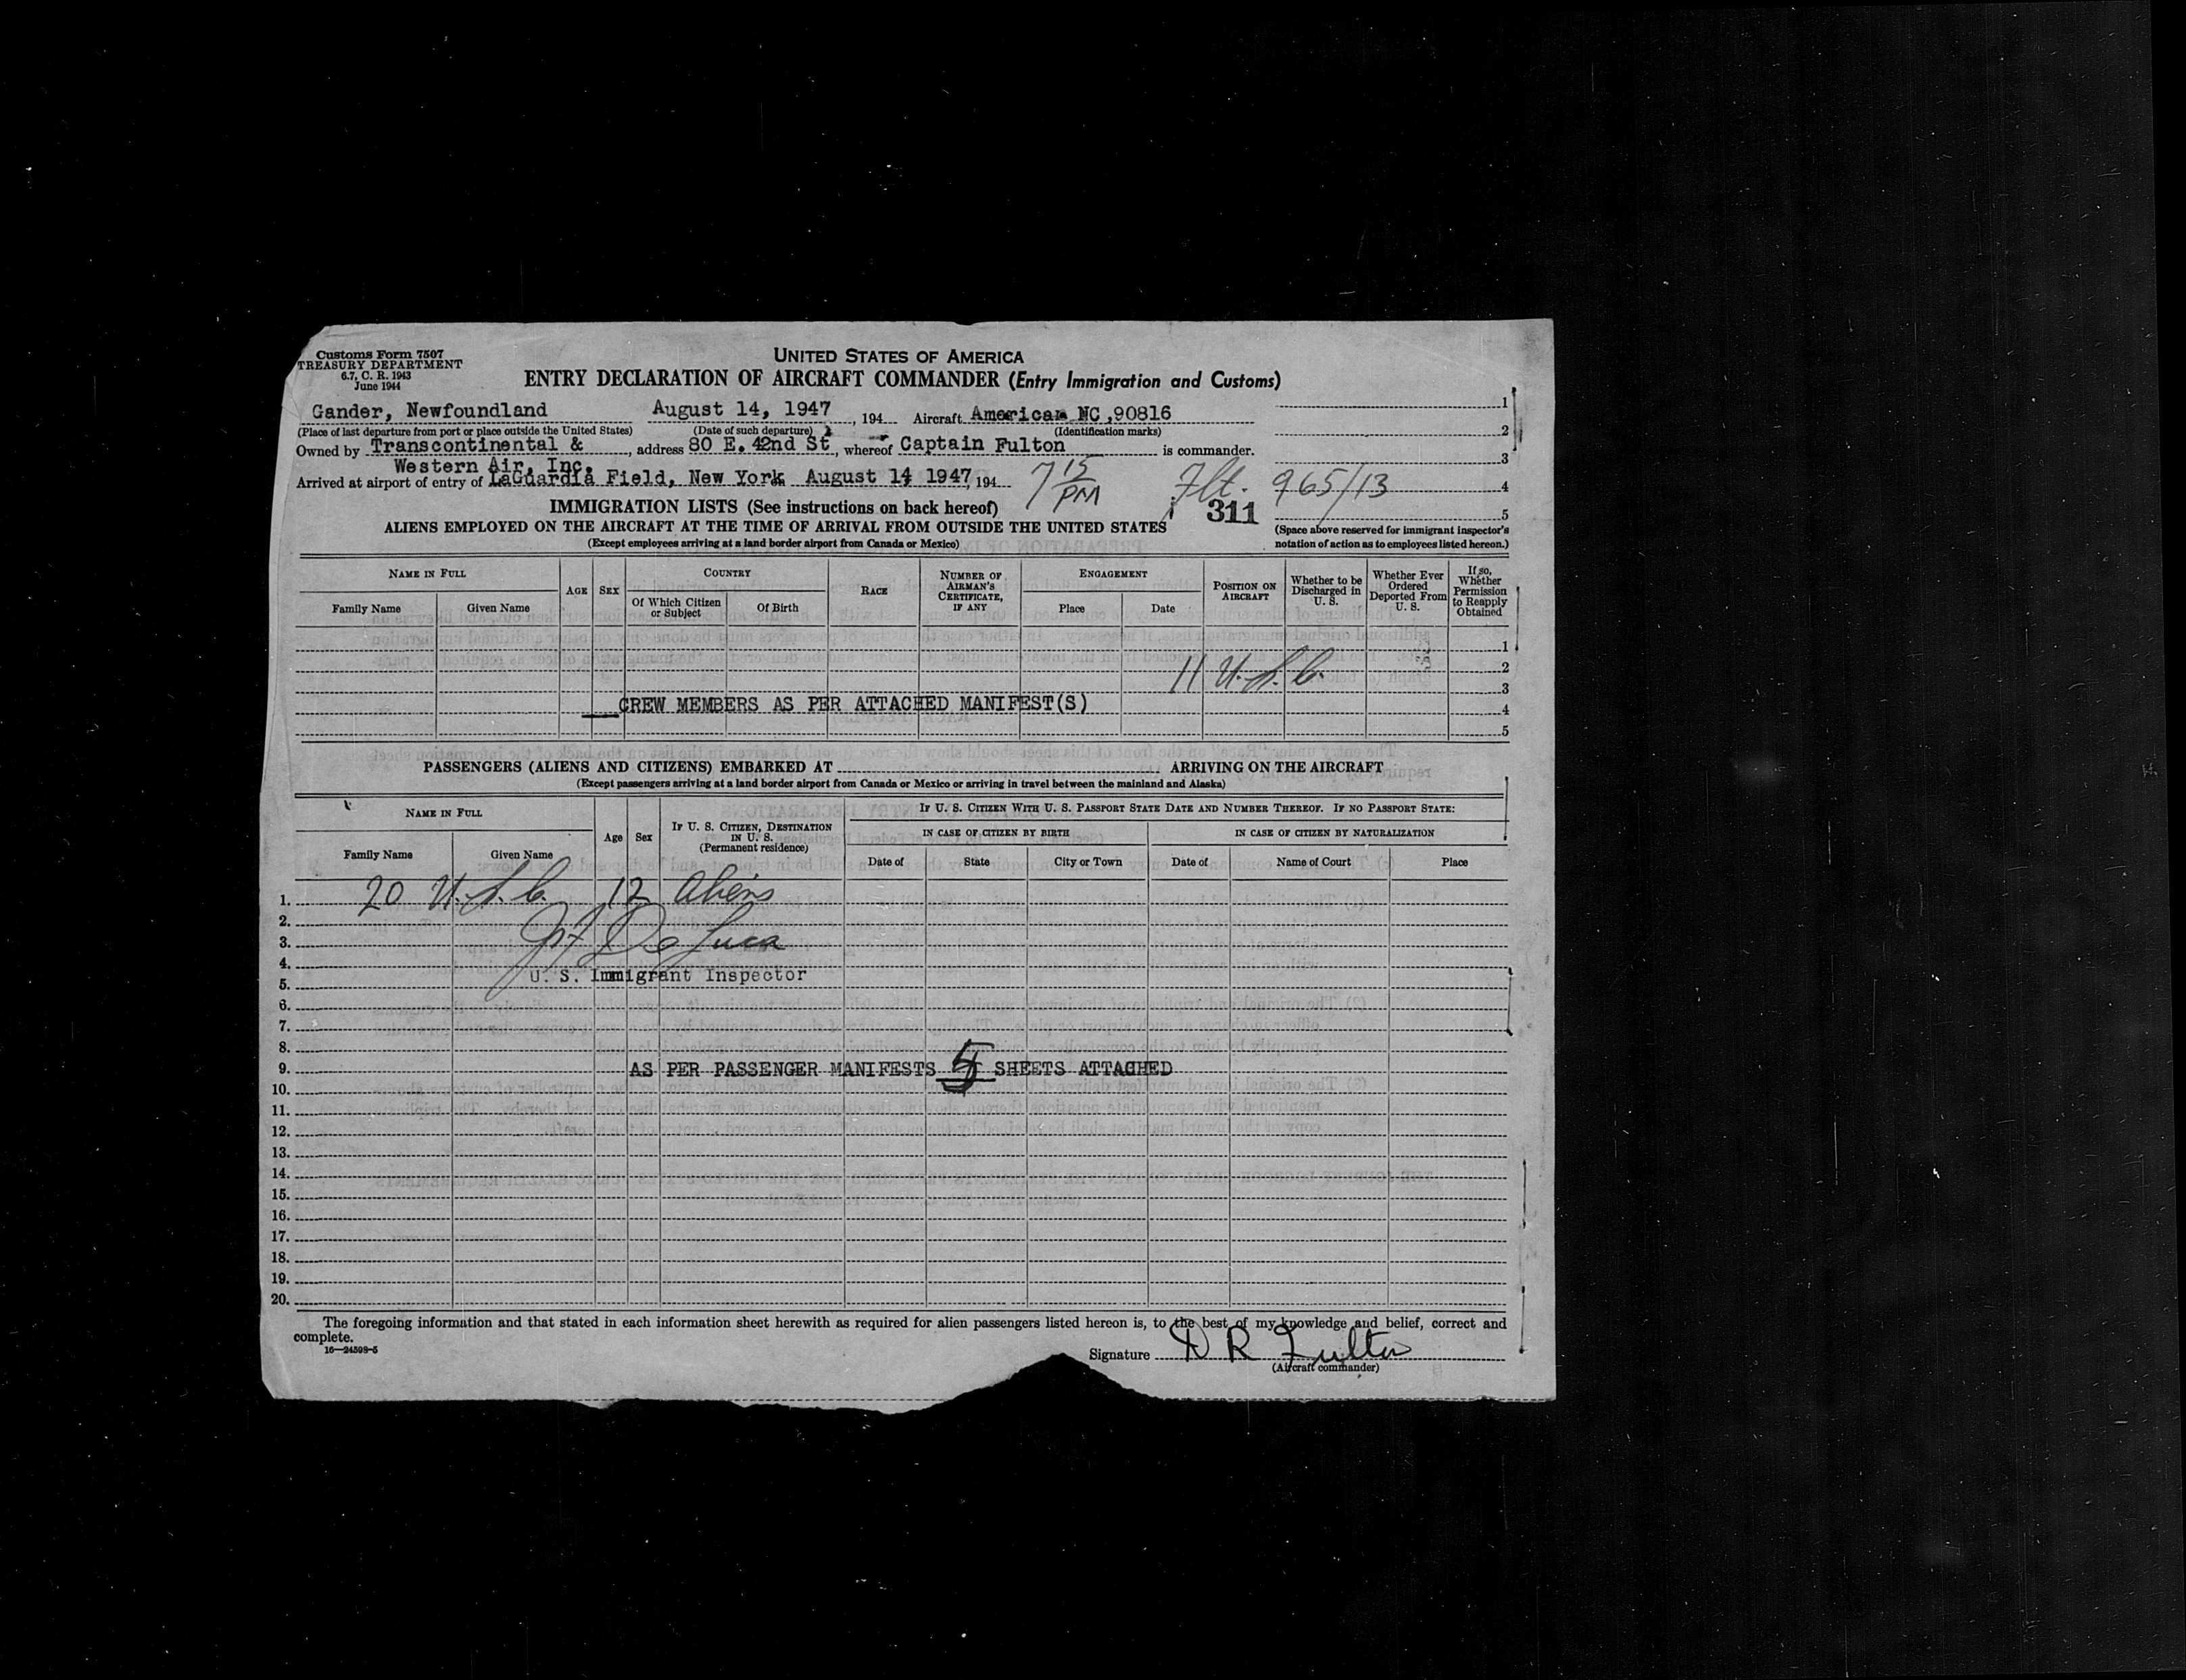 Customs Form 7507
TREASURY DEPARTMENT
6.7, C. R. 1943
June 1944
UNITED STATES OF AMERICA
ENTRY DECLARATION OF AIRCRAFT COMMANDER (Entry Immigration and Customs)
Gander, Newfoundland August 14, 1947, 194 Aircraft American NC,90816
(Place of last departure from port or place outside the United States) (Date of such departure) (Identification marks)
Owned by Transcontinental & , address 80 E. 42nd St, whereof Captain Fulton is commander.
Western Air, Inc.
Arrived at airport of entry of LaGuardia Field, New York August 14 1947, 194 7 15 PM Flt. 965/13
1
2
3
4
5
IMMIGRATION LISTS (See instructions on back hereof)
311
ALIENS EMPLOYED ON THE AIRCRAFT AT THE TIME OF ARRIVAL FROM OUTSIDE THE UNITED STATES
(Except employees arriving at a land border airport from Canada or Mexico)
(Space above reserved for immigrant inspector's
notation of action as to employees listed hereon.)
NAME IN FULL
Family Name Given Name
AGE SEX
COUNTRY
Of Which Citizen or Subject Of Birth
RACE
NUMBER OF AIRMAN'S CERTIFICATE, IF ANY
ENGAGEMENT
Place Date
POSITION ON AIRCRAFT
Whether to be Discharged in U. S.
Whether Ever Ordered Deported From U. S.
If so, Whether Permission to Reapply Obtained
1
11 U.S.C. 2
3
CREW MEMBERS AS PER ATTACHED MANIFEST(S) 4
5
PASSENGERS (ALIENS AND CITIZENS) EMBARKED AT ARRIVING ON THE AIRCRAFT
(Except passengers arriving at a land border airport from Canada or Mexico or arriving in travel between the mainland and Alaska)
NAME IN FULL
Family Name Given Name
Age Sex
IF U. S. CITIZEN, DESTINATION IN U. S.
(Permanent residence)
IF U. S. CITIZEN WITH U. S. PASSPORT STATE DATE AND NUMBER THEREOF. IF NO PASSPORT STATE:
IN CASE OF CITIZEN BY BIRTH IN CASE OF CITIZEN BY NATURALIZATION
Date of State City or Town Date of Name of Court Place
1. 20 U.S.C. 12 Aliens
2.
3. De Luca
4.
U. S. Immigrant Inspector
5.
6.
7.
8.
9. AS PER PASSENGER MANIFESTS 5 SHEETS ATTACHED
10.
11.
12.
13.
14.
15.
16.
17.
18.
19.
20.
The foregoing information and that stated in each information sheet herewith as required for alien passengers listed hereon is, to the best of my knowledge and belief, correct and
complete.
16—24598-5
Signature D R Fulton
(Aircraft commander)